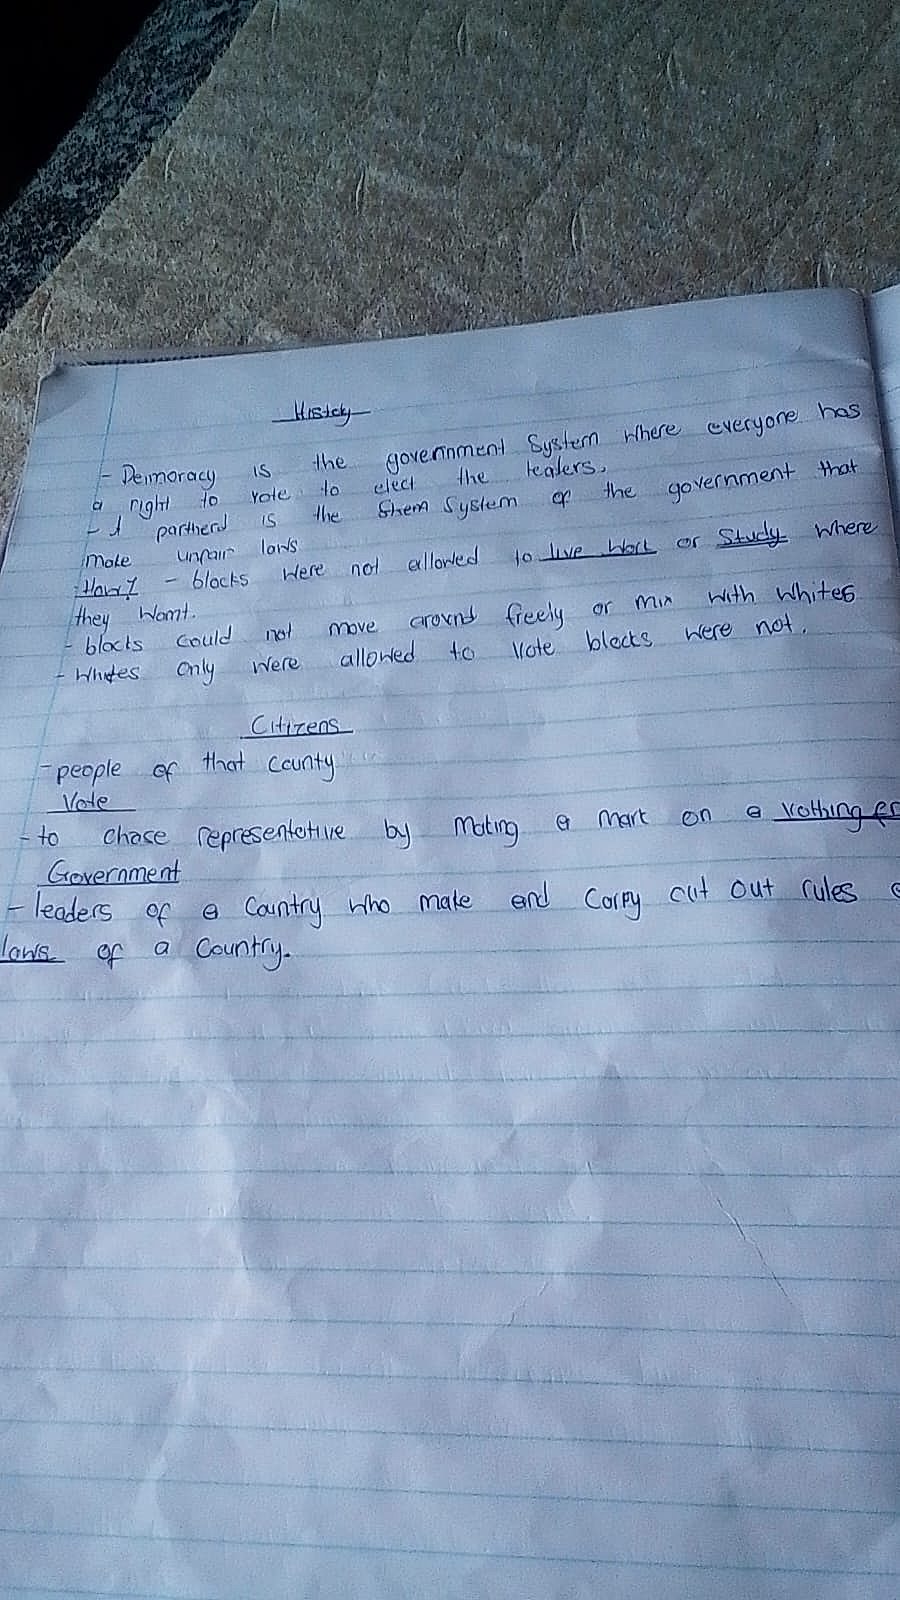 History
- Deimoracy is the government System where everyone has
a right to vote to elect the lealers.
- A partherd is the Stem System of the government that
make unpair laws
How? - blacks were not allowed to live work or Study where
they want.
- blacks could not move around freely or mix with whites
- whites only were allowed to vote blacks were not.
Citizens
- people of that County
Vote
- to chase representetive by Mating a mark on a vothing
Government
- leaders of a Country who make and Carpy cut out rules
laws of a Country.